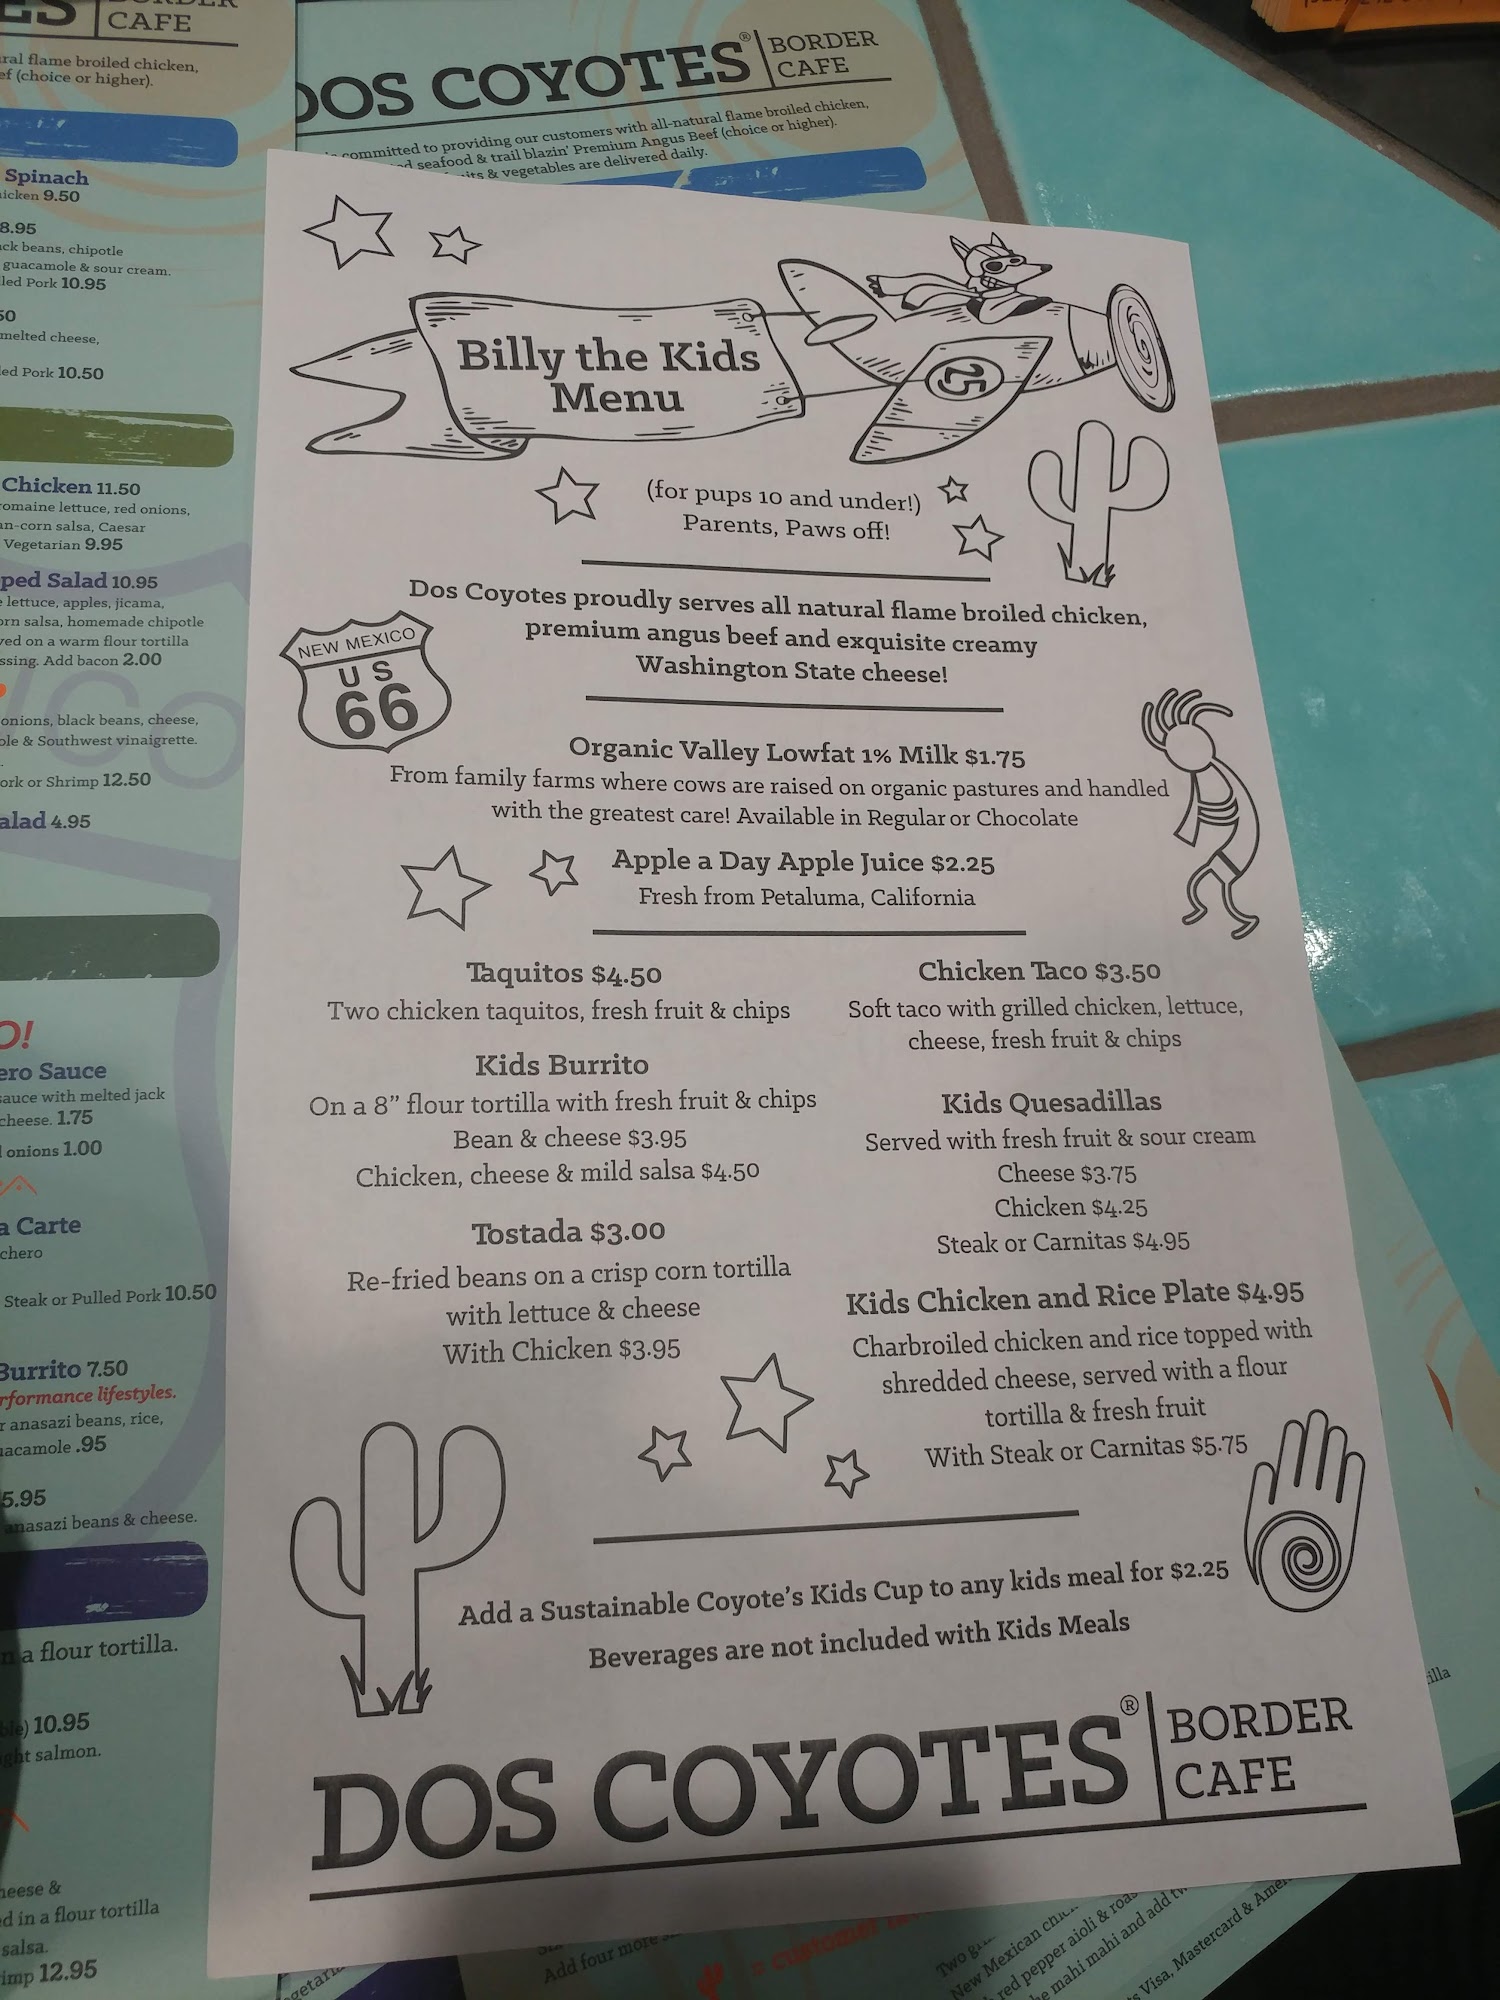 CAFE
ral flame broiled chicken,
ef (choice or higher).
Spinach
icken 9.50
8.95
ck beans, chipotle
guacamole & sour cream.
led Pork 10.95
50
melted cheese,
ed Pork 10.50
Chicken 11.50
omaine lettuce, red onions,
an-corn salsa, Caesar
Vegetarian 9.95
ped Salad 10.95
e lettuce, apples, jicama,
orn salsa, homemade chipotle
ved on a warm flour tortilla
ssing. Add bacon 2.00
onions, black beans, cheese,
ole & Southwest vinaigrette.
ork or Shrimp 12.50
alad 4.95
O!
ero Sauce
sauce with melted jack
cheese. 1.75
onions 1.00
a Carte
chero
Steak or Pulled Pork 10.50
Burrito 7.50
rformance lifestyles.
r anasazi beans, rice,
uacamole .95
5.95
anasazi beans & cheese.
n a flour tortilla.
10.95
ght salmon.
heese &
d in a flour tortilla
salsa.
imp 12.95
DOS COYOTES® BORDER
CAFE
committed to providing our customers with all-natural flame broiled chicken,
seafood & trail blazin' Premium Angus Beef (choice or higher).
& vegetables are delivered daily.
Billy the Kids
Menu
25
(for pups 10 and under!)
Parents, Paws off!
Dos Coyotes proudly serves all natural flame broiled chicken,
premium angus beef and exquisite creamy
Washington State cheese!
NEW MEXICO
US
66
Organic Valley Lowfat 1% Milk $1.75
From family farms where cows are raised on organic pastures and handled
with the greatest care! Available in Regular or Chocolate
Apple a Day Apple Juice $2.25
Fresh from Petaluma, California
Taquitos $4.50
Two chicken taquitos, fresh fruit & chips
Kids Burrito
On a 8" flour tortilla with fresh fruit & chips
Bean & cheese $3.95
Chicken, cheese & mild salsa $4.50
Tostada $3.00
Re-fried beans on a crisp corn tortilla
with lettuce & cheese
With Chicken $3.95
Chicken Taco $3.50
Soft taco with grilled chicken, lettuce,
cheese, fresh fruit & chips
Kids Quesadillas
Served with fresh fruit & sour cream
Cheese $3.75
Chicken $4.25
Steak or Carnitas $4.95
Kids Chicken and Rice Plate $4.95
Charbroiled chicken and rice topped with
shredded cheese, served with a flour
tortilla & fresh fruit
With Steak or Carnitas $5.75
Add a Sustainable Coyote's Kids Cup to any kids meal for $2.25
Beverages are not included with Kids Meals
DOS COYOTES® BORDER
CAFE
illa
Add four more
= customer
Two
New Mexican
red pepper aioli &
mahi mahi and add
Visa, Mastercard &